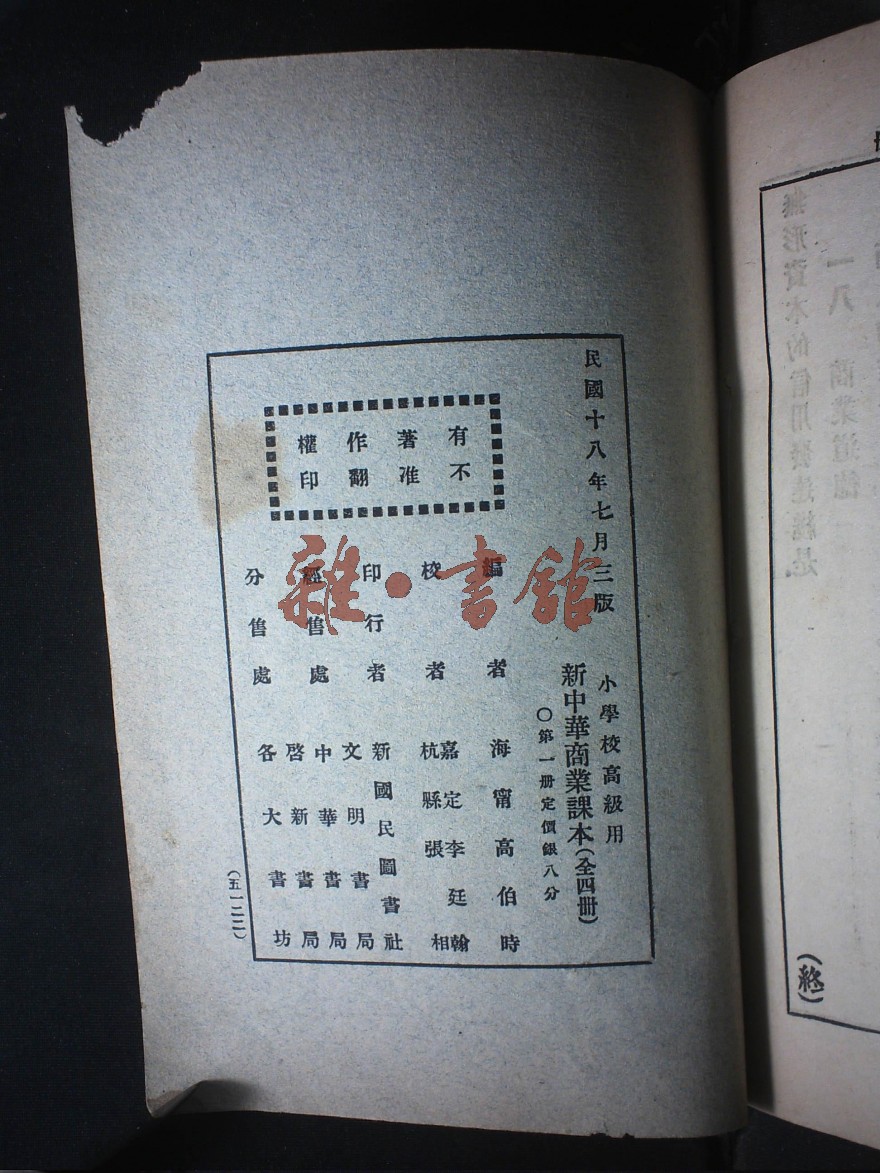 民國十八年七月三版
小學校高級用
新中華商業課本(全四冊)
〇第一册定價銀八分
有著作權
不准翻印
編者 海甯高伯時
校者 嘉定李廷翰
杭縣張相
印行者 新國民圖書社
經售處 文明書局
中華書局
啓新書局
分售處 各大書坊
(五一二二)
雜·書館
一八 商業道德
無形資本的信用發達纔是.
(終)